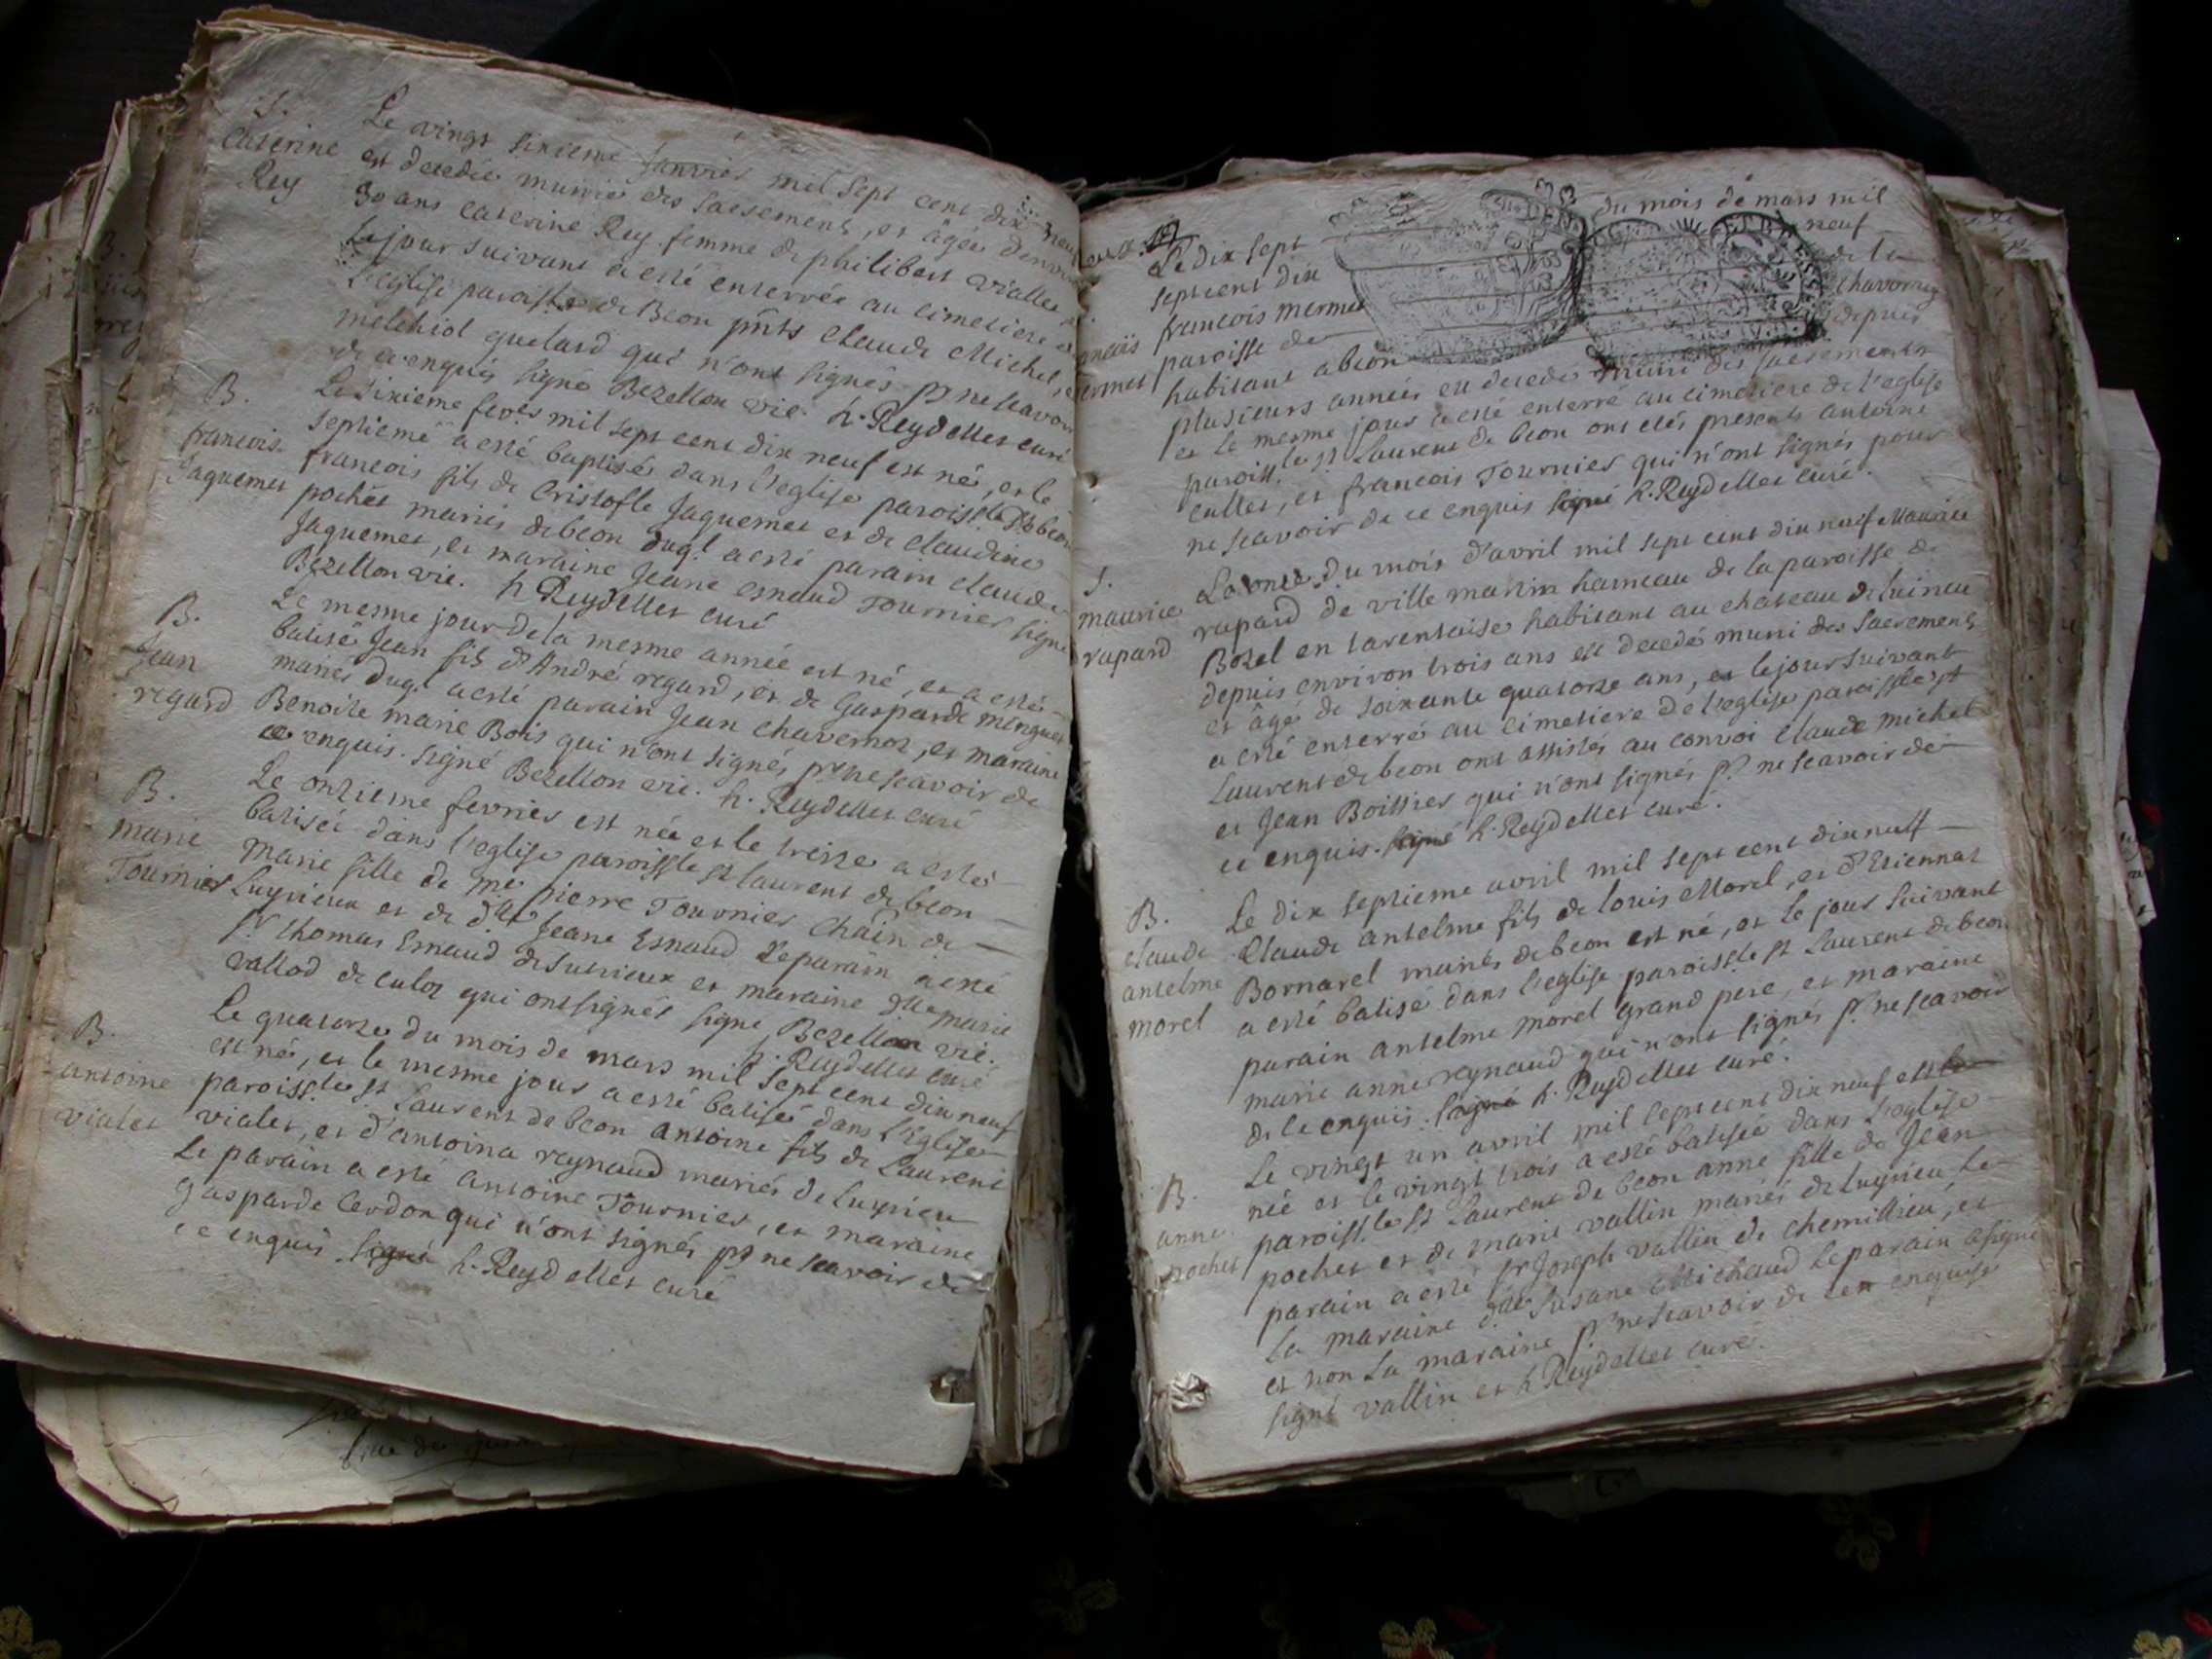 S.
Caterine
Rey
Le vingt sixieme Janvier mil sept cent dix neuf
est decedée munie des sacrements, et âgée d'environ
30 ans Caterine Rey femme de philibert viallet
le jour suivant a esté enterrée au cimetiere de
L'eglise paroissle de Beon pnts Claude Michel, et
melchiol quelard qui n'ont signés pr ne scavoir
de ce enquis signé Bezellon vic. h. Reydellet curé
B.
francois
Jaquemet
Le sixieme fevrer mil sept cent dix neuf est né, et le
septieme a esté baptisé dans l'eglise paroissle de beon
francois fils de Cristofle Jaquemet et de Claudine
pochet mariés de beon dugl a esté parain claude
Jaquemet, et maraine Jeane esnaud Tournier signé
Bezellon vic. h Reydellet curé
B.
Jean
regard
Le mesme jour de la mesme année est né, et a esté
batisé Jean fils d'André regard, et de Gasparde minguet
mariés dugl a esté parain Jean Chavernoz, et maraine
Benoite marie Bois qui n'ont signés pr ne scavoir de
ce enquis. signé Bezellon vic. h. Reydellet curé
B.
marie
Tournier
Le onzieme fevrier est née et le treize a estée
batisée dans l'eglise paroissle st laurent de beon
marie fille de me pierre Tournier Châîn de
Luyrieux et de dlle Jeane Esnaud Le parain a esté
sr thomas Esnaud de Surieux et maraine dlle marie
vallod de culoz qui ont signés signé Bezellon vic.
h. Reydellet curé
B.
antoine
vialet
Le quatorze du mois de mars mil sept cent dix neuf
est né, et le mesme jour a esté batisé dans l'Eglise
paroissle st Laurent de beon antoine fils de Laurent
vialet, et d'antoina reynaud mariés de luyrieu
Le parain a esté antoine Tournier, et maraine
gasparde Cerdon qui n'ont signés pr ne scavoir de
ce enquis signé h. Reydellet curé
ancois
ermet
Le dix sept du mois de mars mil
sept cent dix neuf
francois mermet de la
paroisse de Chavornay
habitant a beon depuis
plusieurs années est decedé muni des sacrements
et le mesme jour a esté enterré au cimetiere de l'eglise
paroissle st Laurent de beon ont etés presents antoine
cullet, et francois Tournier qui n'ont signés pour
ne scavoir de ce enquis signé h. Reydellet curé.
S.
maurice
rapard
Le onze du mois d'avril mil sept cent dix neuf Maurice
rapard de ville martin hameau de la paroisse de
Bozel en tarentaise habitant au chateau de luirieu
depuis environ trois ans est decedé muni des sacrements
et âgé de soixante quatorze ans, et le jour suivant
a esté enterré au cimetiere de l'eglise paroissle st
Laurent de beon ont assistés au convoi Claude michel
et Jean Boissier qui n'ont signés pr ne scavoir de
ce enquis. signé h. Reydellet curé.
B.
claude
antelme
morel
Le dix septieme avril mil sept cent dix neuf
Claude antelme fils de louis Morel, et d'Etiennaz
Bornarel mariés de beon est né, et le jour suivant
a esté batisé dans l'eglise paroissle st Laurent de beon
parain antelme morel grand pere, et maraine
marie anne reynaud qui n'ont signés pr ne scavoir
de ce enquis. signé h. Reydellet curé.
B.
anne
pochet
Le vingt un avril mil sept cent dix neuf est
née et le vingt trois a esté batisée dans l'eglise
paroissle st Laurent de beon anne fille de Jean
pochet et de marie vallin mariés de luyrieu, Le
parain a esté sr Joseph vallin de chemillieu, et
La maraine dlle Susane Michaud Le parain a signé
et non La maraine pr ne scavoir de ce enquise
signé vallin et h Reydellet curé.